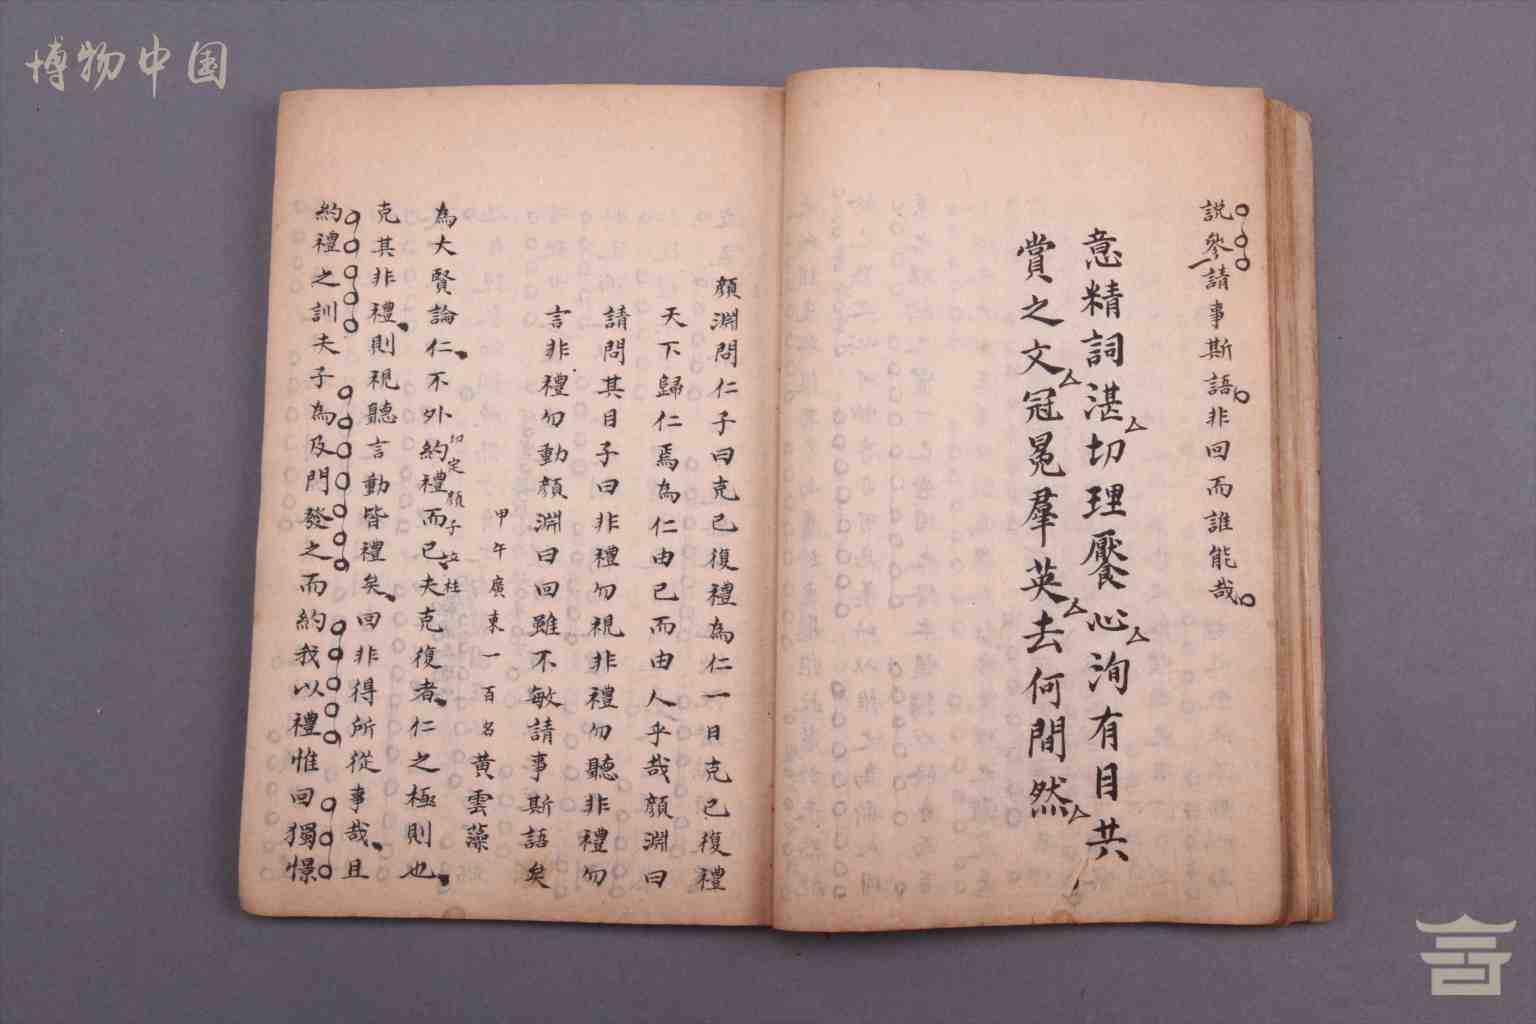 博物中国
說參請事斯語非回而誰能哉
意精詞湛切理饜心洵有目共
賞之文冠冕羣英去何間然
顏淵問仁子曰克己復禮為仁一日克己復禮
天下歸仁焉為仁由己而由人乎哉顏淵曰
請問其目子曰非禮勿視非禮勿聽非禮勿
言非禮勿動顏淵曰回雖不敏請事斯語矣
甲午廣東一百名黃雲藻
為大賢論仁不外約禮而已夫克復者仁之極則也
切定顏子立柱
克其非禮則視聽言動皆禮矣回非得所從事哉且
約禮之訓夫子為及門發之而約我以禮惟回獨憬